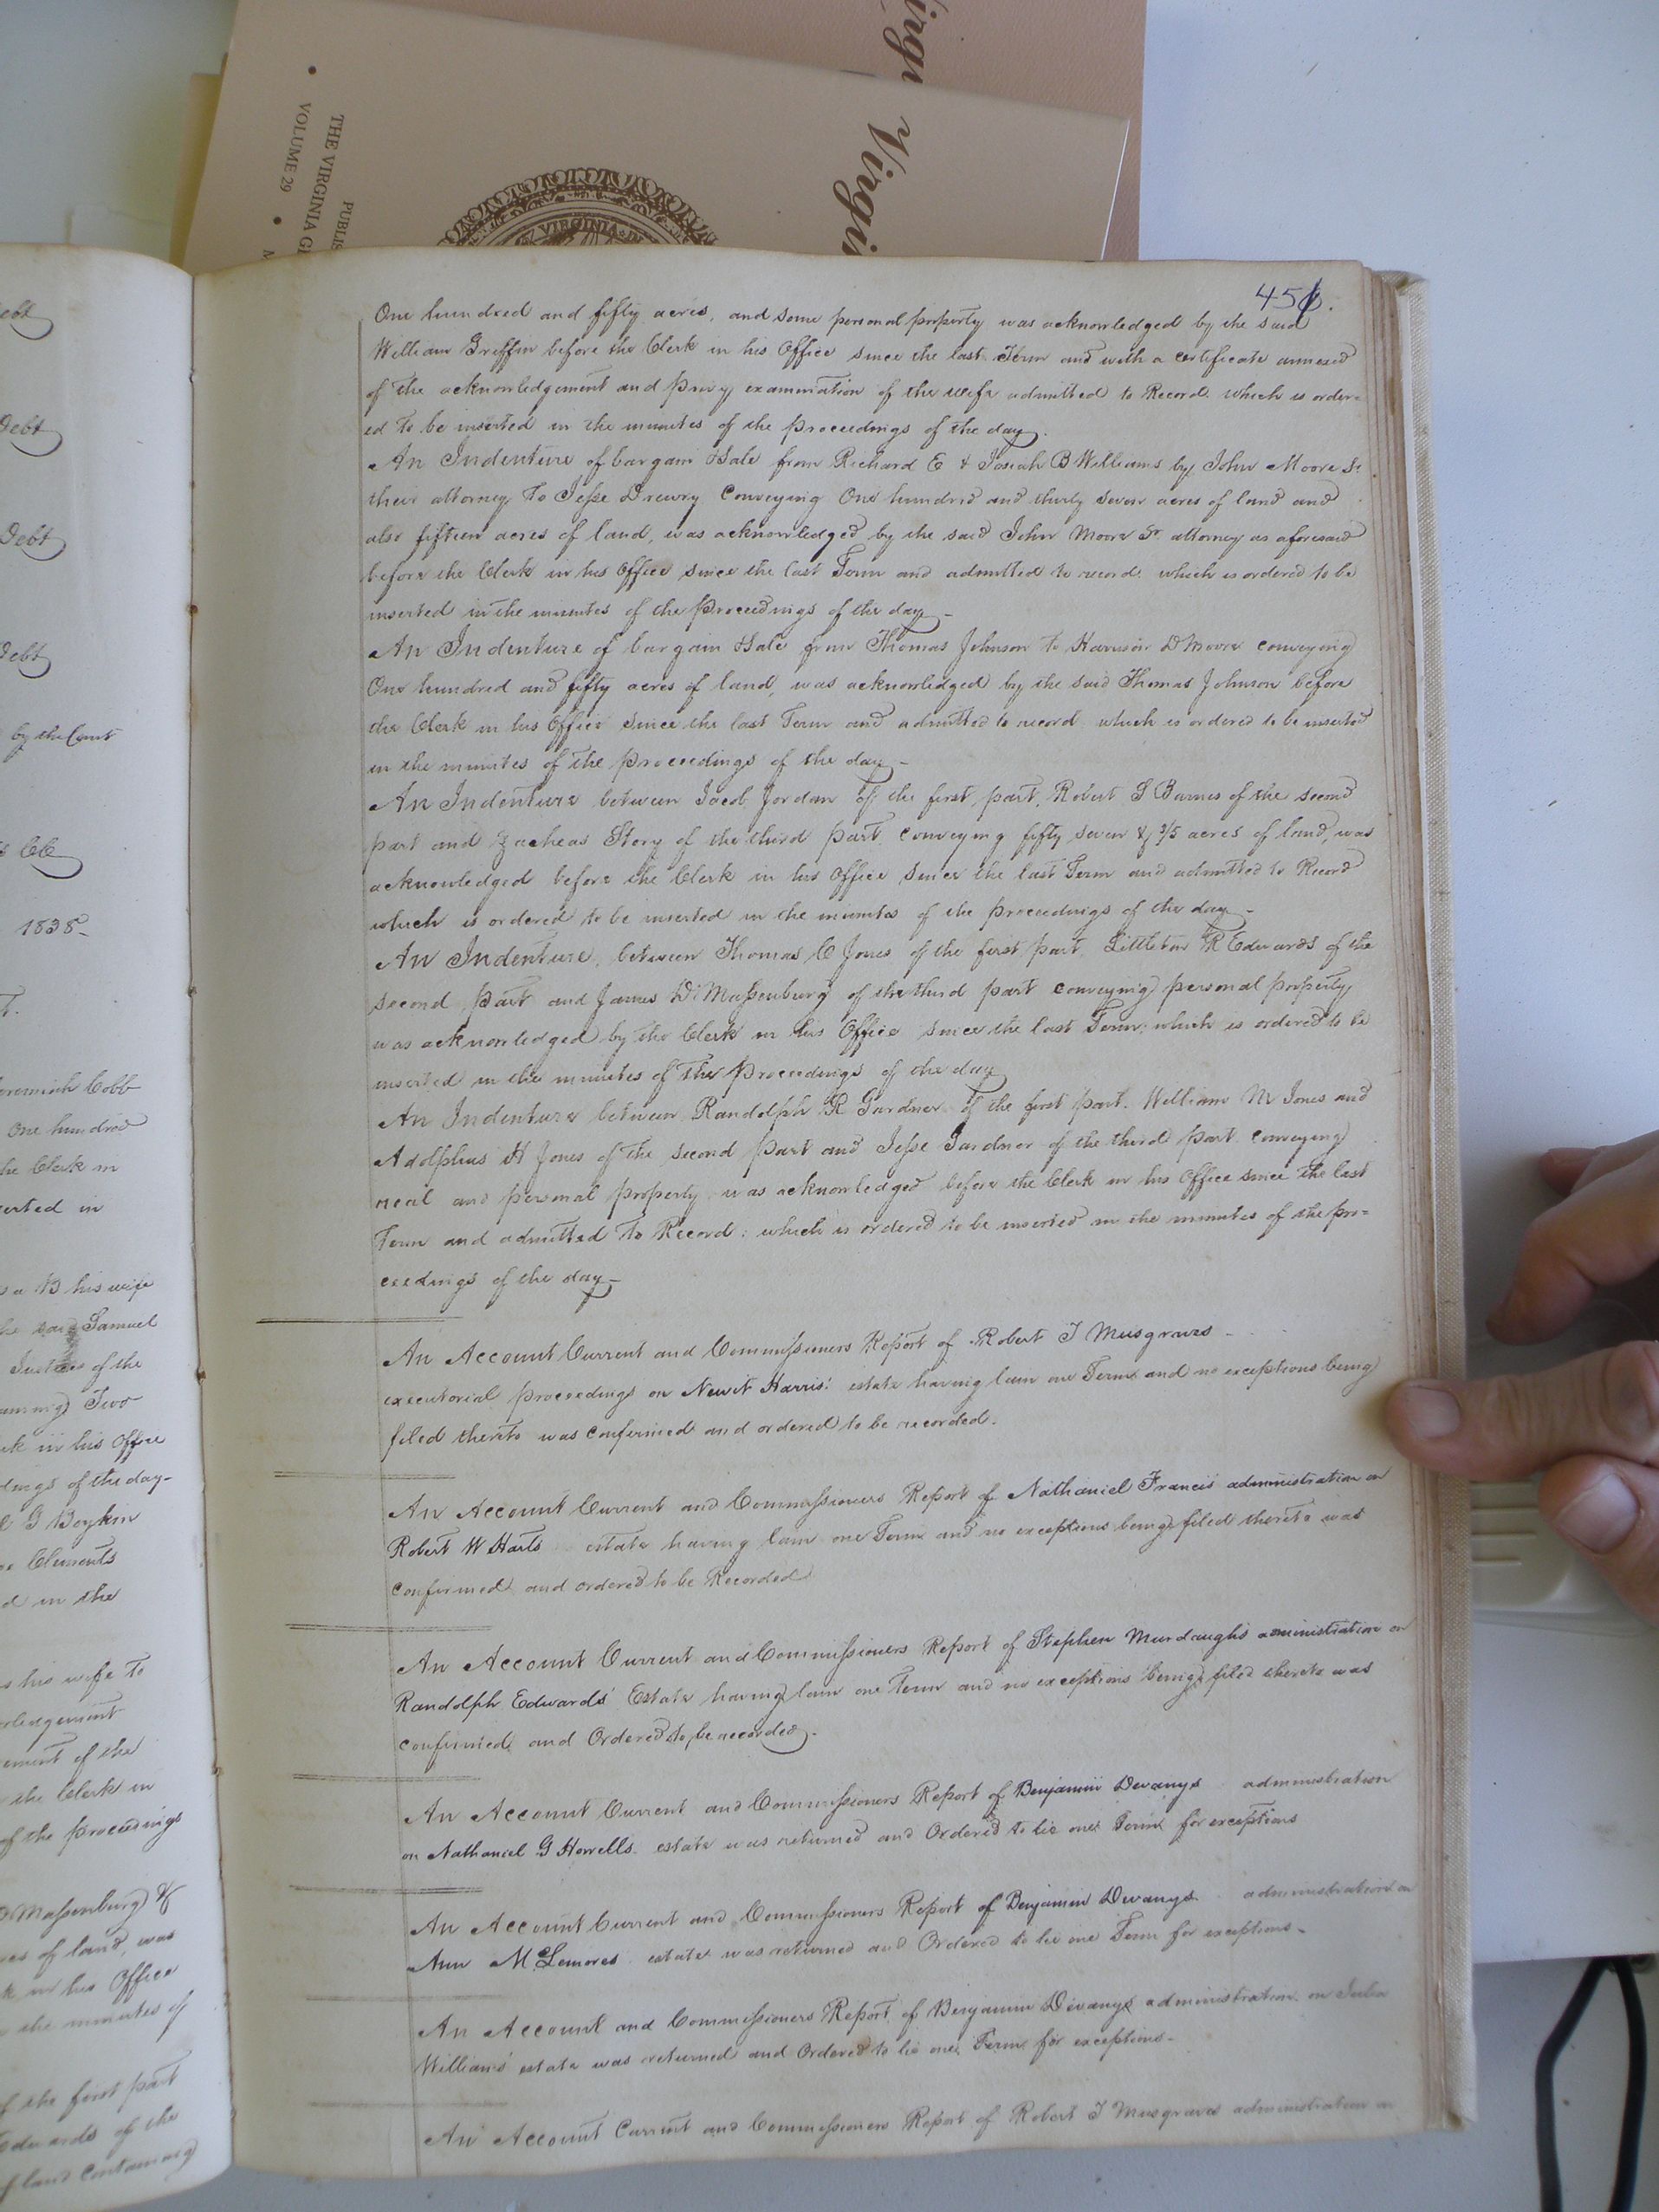 Virgin
Virgi
THE VIRGINIA GE
VOLUME 29
PUBLIS
VIRGINIA
Debt
Debt
Debt
by the Court
1838-
T.
eremiah Cobb
One hundred
he Clerk in
erted in
a B his wife
he said Samuel
Justices of the
Two
rk in his Office
dings of the day-
G Boykin
Clements
d in the
s his wife to
ement of the
the Clerk in
of the proceedings
D Massenburg &
es of land, was
k in his Office
the minutes of
f the first part
Edwards of the
f land Containing
456.
One hundred and fifty acres, and some personal property was acknowledged by the said
William Griffin before the Clerk in his Office since the last Term and with a certificate annexed
of the acknowledgement and privy examination of the wife admitted to Record which is order=
ed to be inserted in the minutes of the proceedings of the day.
An Indenture of bargain & Sale from Richard E & Josiah B Williams by John Moore Sr
their attorney To Jesse Drewry Conveying One hundred and thirty seven acres of land and
also fifteen acres of land, was acknowledged by the said John Moore Sr attorney as aforesaid
before the Clerk in his Office since the last Term and admitted to record which is ordered to be
inserted in the minutes of the proceedings of the day-
An Indenture of bargain & Sale from Thomas Johnson to Harrison D Moore conveying
One hundred and fifty acres of land, was acknowledged by the said Thomas Johnson before
the Clerk in his Office since the last Term and admitted to record which is ordered to be inserted
in the minutes of the proceedings of the day-
An Indenture between Jacob Jordan of the first part, Robert S Barnes of the second
part and Zacheas Story of the third part conveying fifty seven & 3/5 acres of land, was
acknowledged before the Clerk in his Office since the last Term and admitted to Record
which is ordered to be inserted in the minutes of the proceedings of the day-
An Indenture, between Thomas C Jones of the first part, Littleton R Edwards of the
second part and James D Massenburg of the third part conveying personal property
was acknowledged by the Clerk in his Office since the last Term; which is ordered to be
inserted in the minutes of the proceedings of the day
An Indenture between Randolph R Gardner of the first part. William M Jones and
Adolphus H Jones of the second part and Jesse Gardner of the third part conveying
real and personal property was acknowledged before the Clerk in his Office since the last
Term and admitted to Record; which is ordered to be inserted in the minutes of the pro=
ceedings of the day-
An Account Current and Commissioners Report of Robert T Musgraves
executorial proceedings on Newit Harris' estate having lain one Term and no exceptions being
filed thereto was confirmed and ordered to be recorded.
An Account Current and Commissioners Report of Nathaniel Francis' administration on
Robert W Harts estate having lain one Term and no exceptions being filed thereto was
confirmed and ordered to be Recorded
An Account Current and Commissioners Report of Stephen Murdaugh's administration on
Randolph Edwards' Estate having lain one Term and no exceptions being filed thereto was
confirmed and Ordered to be recorded.
An Account Current and Commissioners Report of Benjamin Devanys administration
on Nathaniel G Horrells estate was returned and Ordered to lie one Term for exceptions
An Account Current and Commissioners Report of Benjamin Devanys administration on
Ann McLemores estate was returned and Ordered to lie one Term for exceptions-
An Account and Commissioners Report of Benjamin Devanys administration on Julia
Williams' estate was returned and Ordered to lie one Term for exceptions-
An Account Current and Commissioners Report of Robert T Musgraves administration on